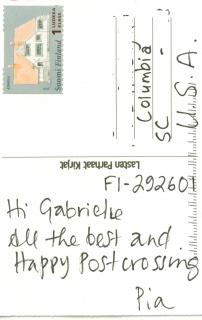 Suomi Finland 1 LUOKKA KLASS
Columbia
SC -
U.S.A.
Lasten Parhaat Kirjat
FI-292601
Hi Gabrielle
All the best and
Happy Postcrossing
Pia